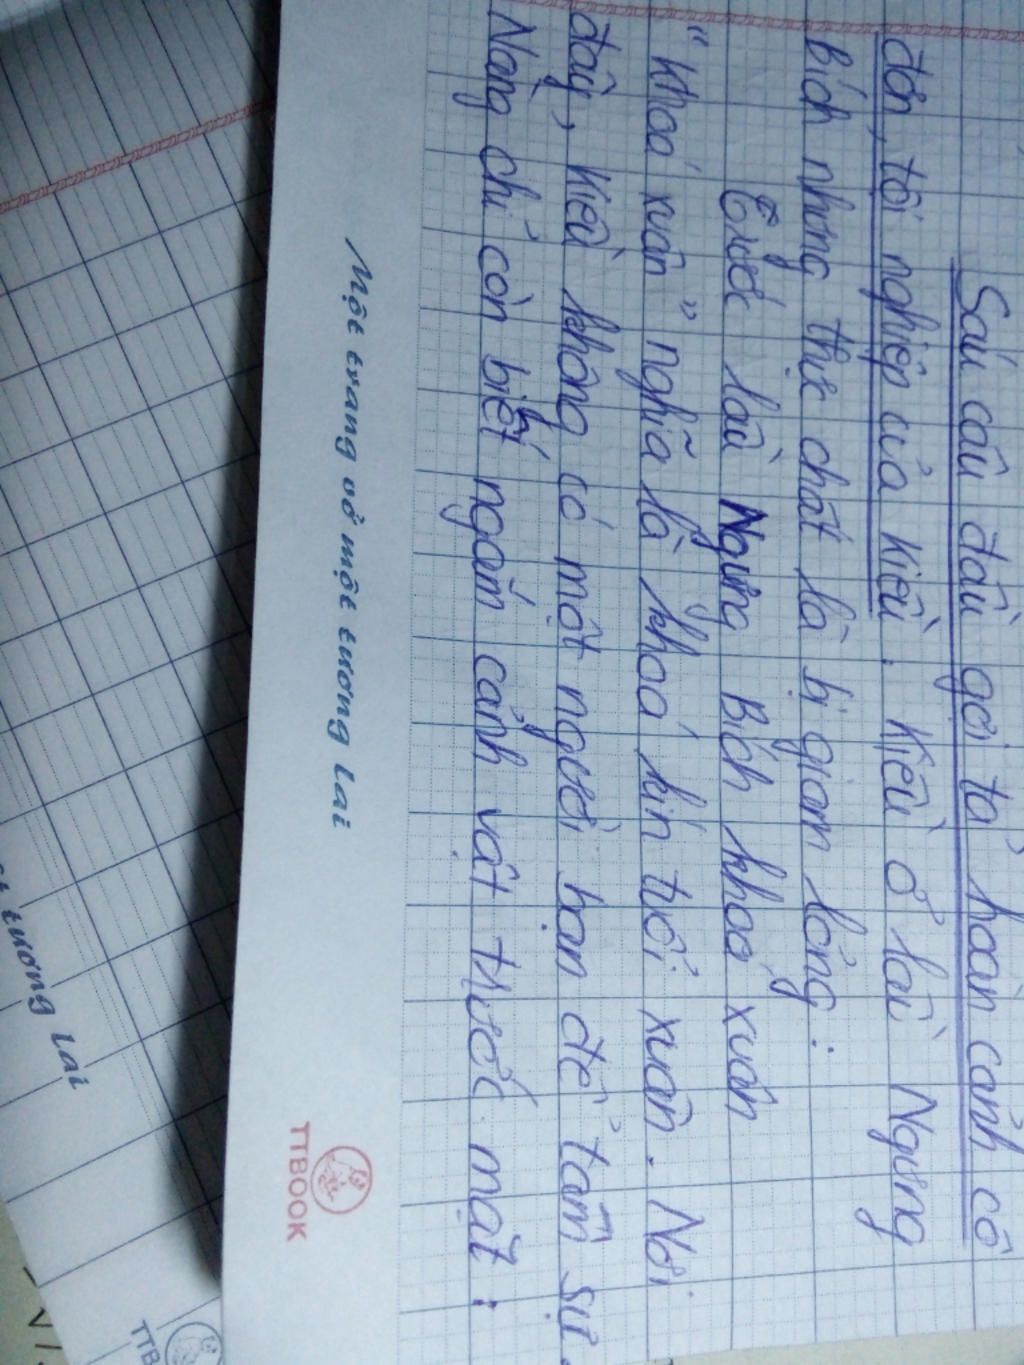 Sáu câu đầu gợi tả hoàn cảnh cô
đơn, tội nghiệp của Kiều. Kiều ở lầu Ngưng
Bích nhưng thực chất là bị giam lỏng:
Trước lầu Ngưng Bích khoá xuân
"Khoá xuân" nghĩa là khoá kín tuổi xuân. Nơi
đây, Kiều không có một người bạn để tâm sự.
Nàng chỉ còn biết ngắm cảnh vật trước mặt:
Một trang vở một tương lai
TTBOOK
tương lai
TTB